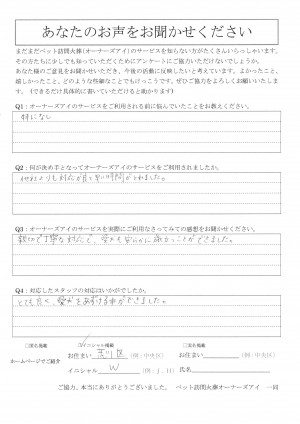 あなたのお声をお聞かせください
まだまだペット訪問火葬(オーナーズアイ)のサービスを知らない方がたくさんいらっしゃいます。
その方たちに少しでも知っていただくためにアンケートにご協力いただけないでしょうか。
あなた様のご意見をお聞かせいただき、今後の活動に反映したいと考えています。よかったこと、
嬉しかったこと、どのような些細なことでもけっこうです。ぜひご協力をよろしくお願いいたしま
す。(できるだけ具体的に書いていただけると助かります)
Q1:オーナーズアイのサービスをご利用される前に悩んでいたことをお教えください。
特になし
Q2:何が決め手となってオーナーズアイのサービスをご利用されましたか。
他社よりも対応が良く早い時間がとれました。
Q3:オーナーズアイのサービスを実際にご利用なさってみての感想をお聞かせください。
親切で丁寧な対応で、
Q4:対応したスタッフの対応はいかがでしたか。
とても良く、
□実名掲載 イニシャル掲載 □匿名掲載
ホームページでご紹介
お住まい 荒川区 (例:中央区) お住まい (例:中央区)
イニシャル W (例:J.H) 氏名
ご協力、本当にありがとうございました。 ペット訪問火葬オーナーズアイ 一同